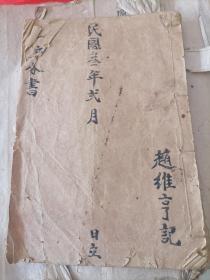 趙維亨記
民國叁年弍月
日立
書